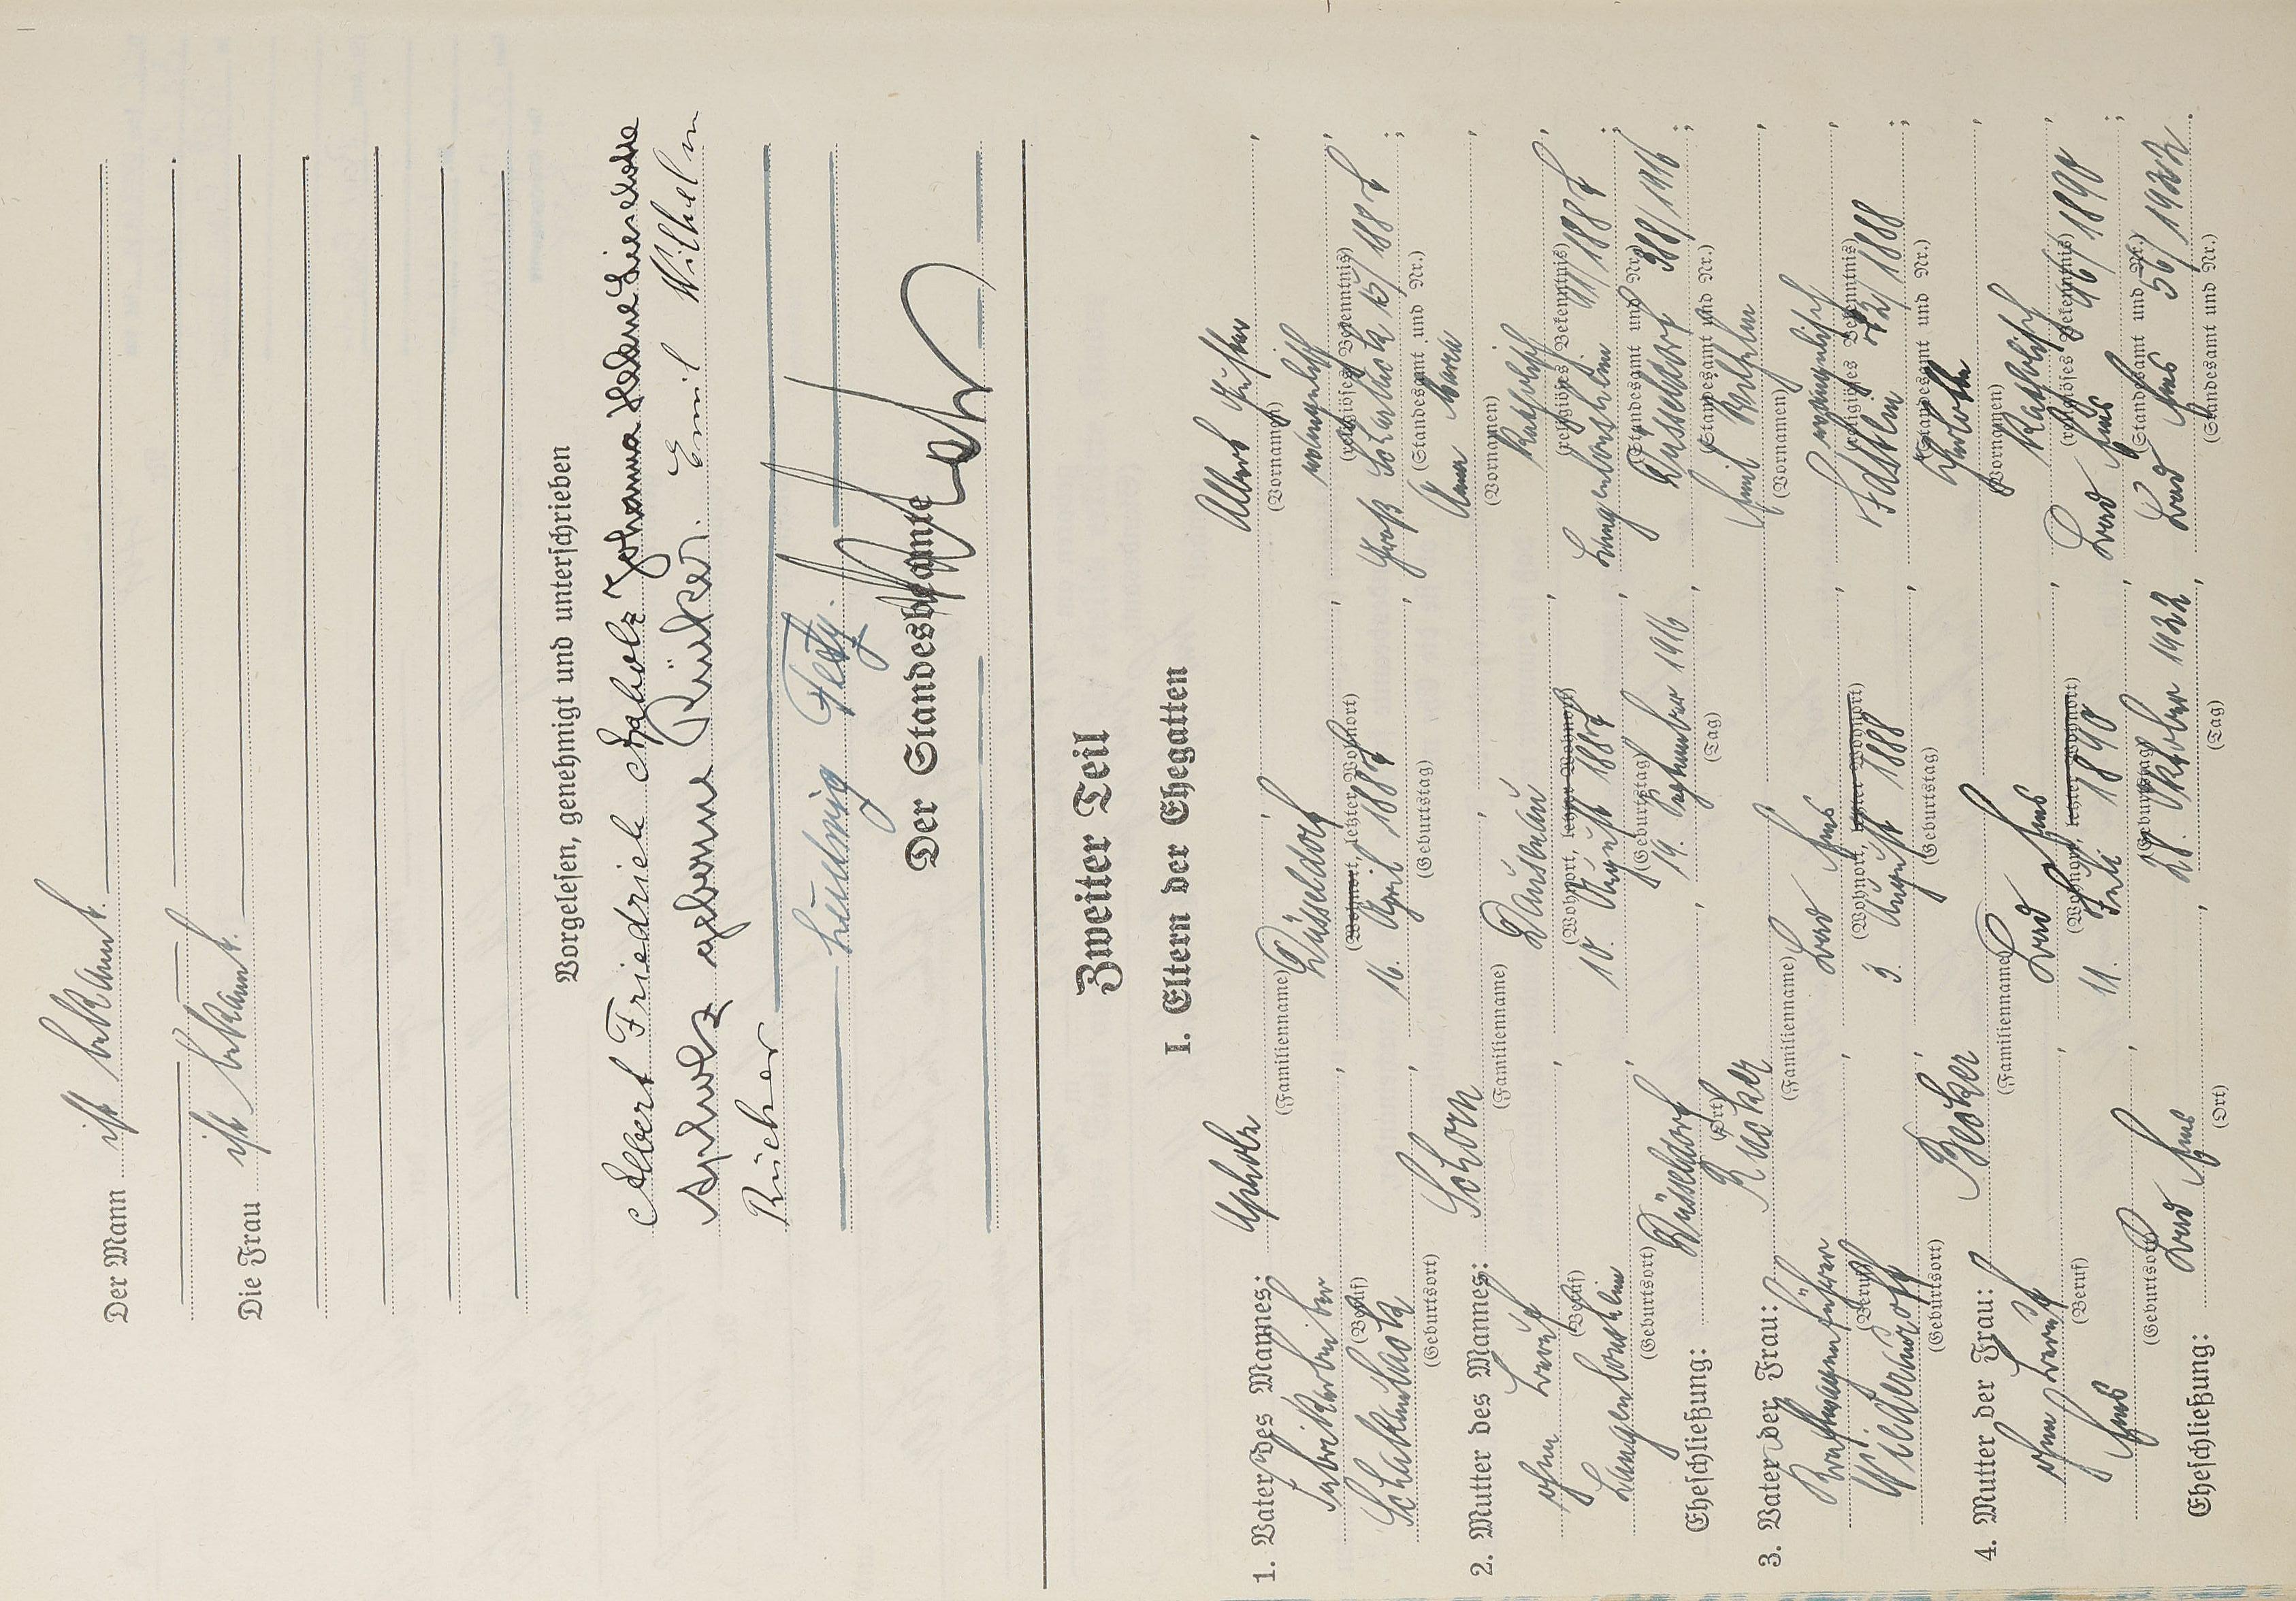 Der Mann ist bekannt.
Die Frau ist bekannt.
Vorgelesen, genehmigt und unterschrieben
Albert Friedrich Apholz Johanna Helene Lieselotte
Apholz geborene Rücker. Emil Wilhelm
Rücker
Ludwig
Der Standesbeamte
Zweiter Teil
I. Eltern der Ehegatten
1. Vater des Mannes: Apholz, Albert Gustav
(Familienname) (Vornamen)
Fabrikarbeiter, Düsseldorf, evangelisch,
(Beruf) (Wohnort, letzter Wohnort) (religiöses Bekenntnis)
16. April 1887, Groß
(Geburtsort) (Geburtstag) (Standesamt und Nr.)
2. Mutter des Mannes: Schorn, Anna Maria,
(Familienname) (Vornamen)
ohne Beruf, Dausenau, katholisch,
(Beruf) (Wohnort, letzter Wohnort) (religiöses Bekenntnis)
Langenlonsheim, 10. August 1887, Langenlonsheim 41/1887;
(Geburtsort) (Geburtstag) (Standesamt und Nr.)
Eheschließung: Düsseldorf, 19. September 1916, Düsseldorf 388/1916;
(Ort) (Tag) (Standesamt und Nr.)
3. Vater der Frau: Rücker, Emil Wilhelm,
(Familienname) (Vornamen)
Bad Ems, evangelisch,
(Beruf) (Wohnort, letzter Wohnort) (religiöses Bekenntnis)
3. August 1888, 1888;
(Geburtsort) (Geburtstag) (Standesamt und Nr.)
4. Mutter der Frau: Becker, Charlotte,
(Familienname) (Vornamen)
ohne Beruf, Bad Ems, katholisch,
(Beruf) (Wohnort, letzter Wohnort) (religiöses Bekenntnis)
Ems, 11. Juli 1890, Bad Ems 96/1890;
(Geburtsort) (Geburtstag) (Standesamt und Nr.)
Eheschließung: Bad Ems, 28. Oktober 1922, Bad Ems 56/1922.
(Ort) (Tag) (Standesamt und Nr.)